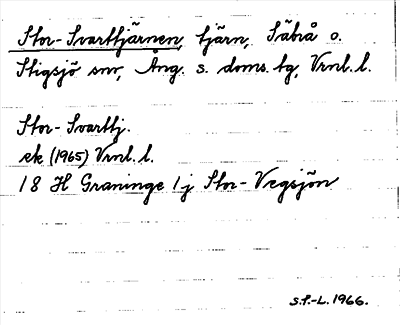 Stor-Svarttjärnen, tjärn, Säbrå o.
Stigsjö snr, Ång. s. doms. tg, Vrnl. l.
Stor-Svarttj.
ek (1965) Vrnl. l.
18 H Graninge 1j Stor-Vegsjön
S.F.-L. 1966.